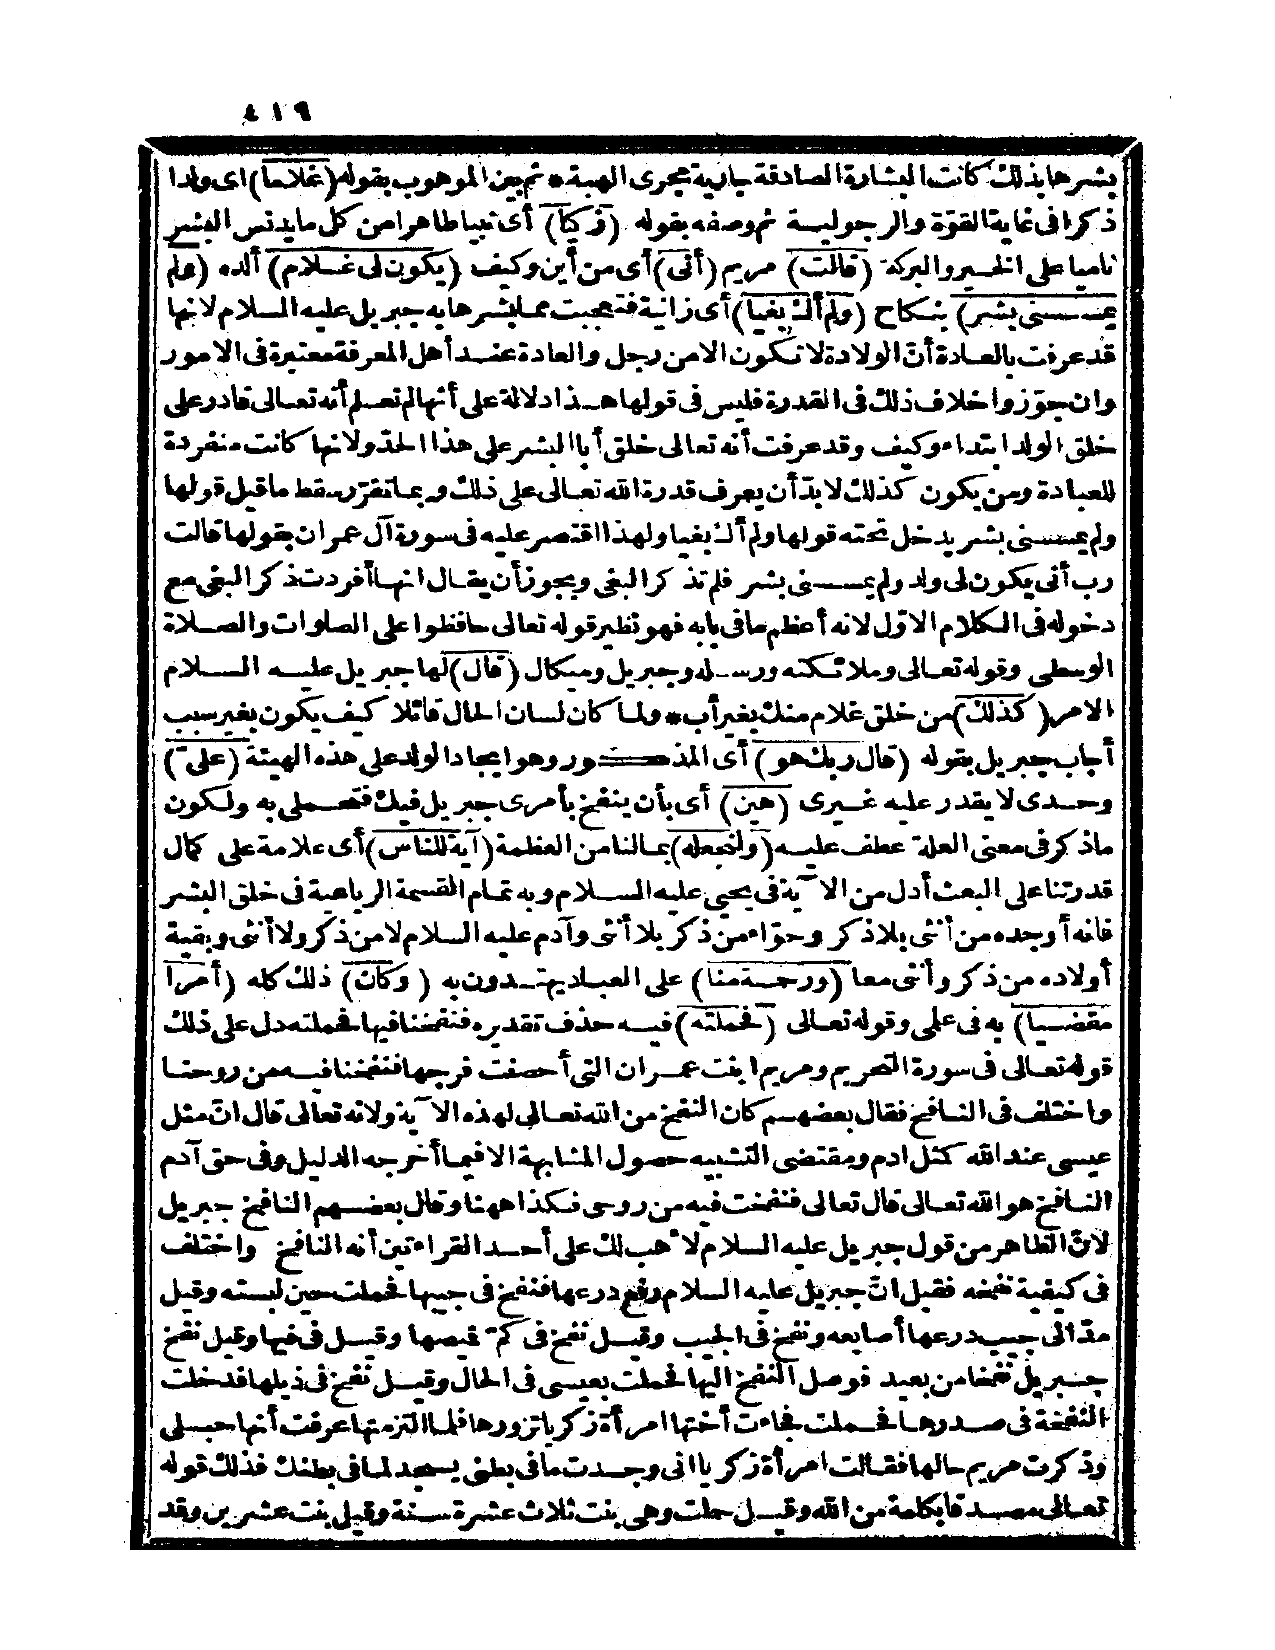 ٤١٩
بشرها بذلك كانت البشارة الصادقة جارية مجرى الهبة * ثم بين الموهوب بقوله (غلاما) اى ولدا
ذكرا فى غاية القوّة والرجولية ثم وصفه بقوله (زكيا) أى نبيا طاهرا من كل ما يدنس البشر
ناميا على الخير والبركة (قالت) مريم (أنى) أى من أين وكيف (يكون لى غلام) ألده (ولم
يمسسنى بشر) بنكاح (ولم أك بغيا) أى زانية فتعجبت مما بشرها به جبريل عليه السلام لانها
قد عرفت بالعادة أنّ الولادة لا تكون الا من رجل والعادة عند أهل المعرفة معتبرة فى الامور
وان جوّزوا خلاف ذلك فى القدرة فليس فى قولها هذا دلالة على أنها لم تعلم أنه تعالى قادر على
خلق الولد ابتداء وكيف وقد عرفت أنه تعالى خلق أبا البشر على هذا الحدّ ولانها كانت منفردة
للعبادة ومن يكون كذلك لا بدّ أن يعرف قدرة الله تعالى على ذلك وبما تقرّر سقط ما قيل قولها
ولم يمسسنى بشر يدخل تحته قولها ولم أك بغيا ولهذا اقتصر عليه فى سورة آل عمران بقولها قالت
رب أنى يكون لى ولد ولم يمسسنى بشر فلم تذكر البغى ويجوز أن يقال انها أفردت ذكر البغى مع
دخوله فى الكلام الاوّل لانه أعظم ما فى بابه فهو نظير قوله تعالى حافظوا على الصلوات والصلاة
الوسطى وقوله تعالى وملائكته ورسله وجبريل وميكال (قال) لها جبريل عليه السلام
الامر (كذلك) من خلق غلام منك بغير أب * ولما كان لسان الحال قائلا كيف يكون بغير سبب
أجاب جبريل بقوله (قال ربك هو) أى المذكور وهو ايجاد الولد على هذه الهيئة (علىّ)
وحدى لا يقدر عليه غيرى (هين) أى بأن ينفخ بأمرى جبريل فيك فتحملى به ولكون
ما ذكر فى معنى العلة عطف عليه (ولنجعله) بما لنا من العظمة (آية للناس) أى علامة على كمال
قدرتنا على البعث أدل من الآية فى يحيى عليه السلام وبه تمام القسمة الرباعية فى خلق البشر
فانه أوجده من أنثى بلا ذكر وحوّاء من ذكر بلا أنثى وآدم عليه السلام لا من ذكر ولا أنثى وبقية
أولاده من ذكر وأنثى معا (ورحمة منا) على العباد يهتدون به (وكان) ذلك كله (أمرا
مقضيا) به فى علمى وقوله تعالى (فحملته) فيه حذف تقديره فنفخنا فيها فحملته دل على ذلك
قوله تعالى فى سورة التحريم ومريم ابنت عمران التى أحصنت فرجها فنفخنا فيه من روحنا
واختلف فى النافخ فقال بعضهم كان النفخ من الله تعالى لهذه الآية ولانه تعالى قال انّ مثل
عيسى عند الله كمثل ادم ومقتضى التشبيه حصول المشابهة الا فيما أخرجه الدليل وفى حق آدم
النافخ هو الله تعالى قال تعالى فنفخت فيه من روحى فكذا ههنا وقال بعضهم النافخ جبريل
لانّ الظاهر من قول جبريل عليه السلام لأهب لك على أحد القراءتين أنه النافخ واختلف
فى كيفية نفخه فقيل انّ جبريل عليه السلام رفع درعها فنفخ فى جيبها فحملت حين لبسته وقيل
مدّ الى جيب درعها أصابعه ونفخ فى الجيب وقيل نفخ فى كمّ قميصها وقيل فى فيها وقيل نفخ
جبريل نفخا من بعيد فوصل النفخ اليها فحملت بعيسى فى الحال وقيل نفخ فى ذيلها فدخلت
النفخة فى صدرها فحملت فجاءت أختها امرأة زكريا تزورها فلما التزمتها عرفت أنها حبلى
وذكرت مريم حالها فقالت امرأة زكريا انى وجدت ما فى بطنى يسجد لما فى بطنك فذلك قوله
تعالى مصدقا بكلمة من الله وقيل حملت وهى بنت ثلاث عشرة سنة وقيل بنت عشرين وقد